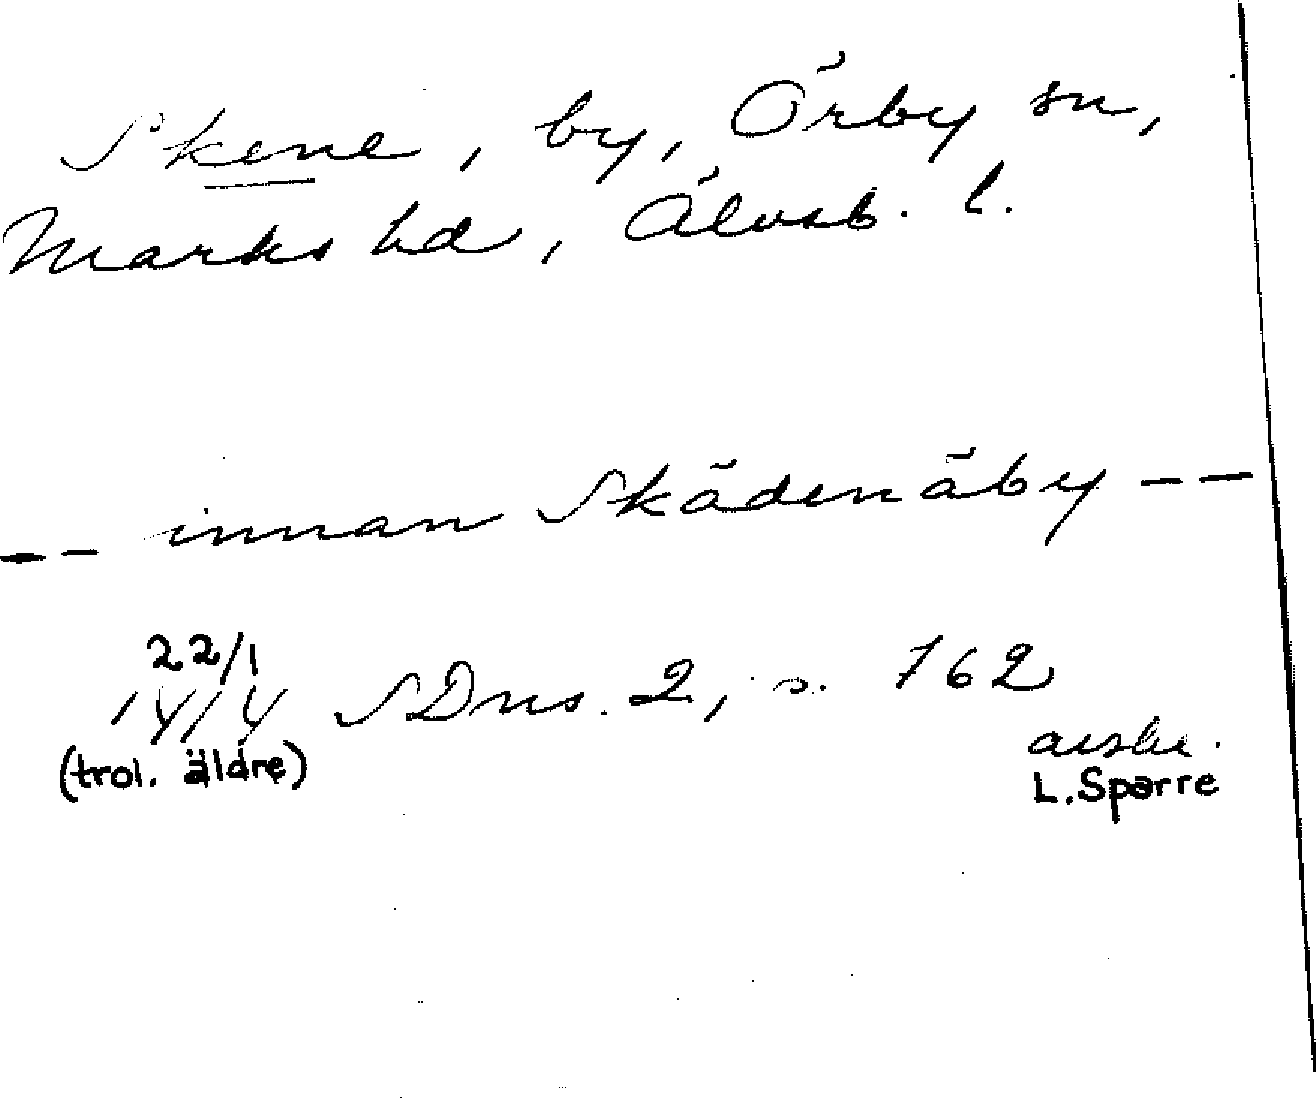 Skene, by, Örby sn,
Marks hd, Älvsb. l.
-- innan Skädenäby --
22/1
14/4 SDns. 2, s. 762
(trol. äldre)
avskr.
L. Sparre